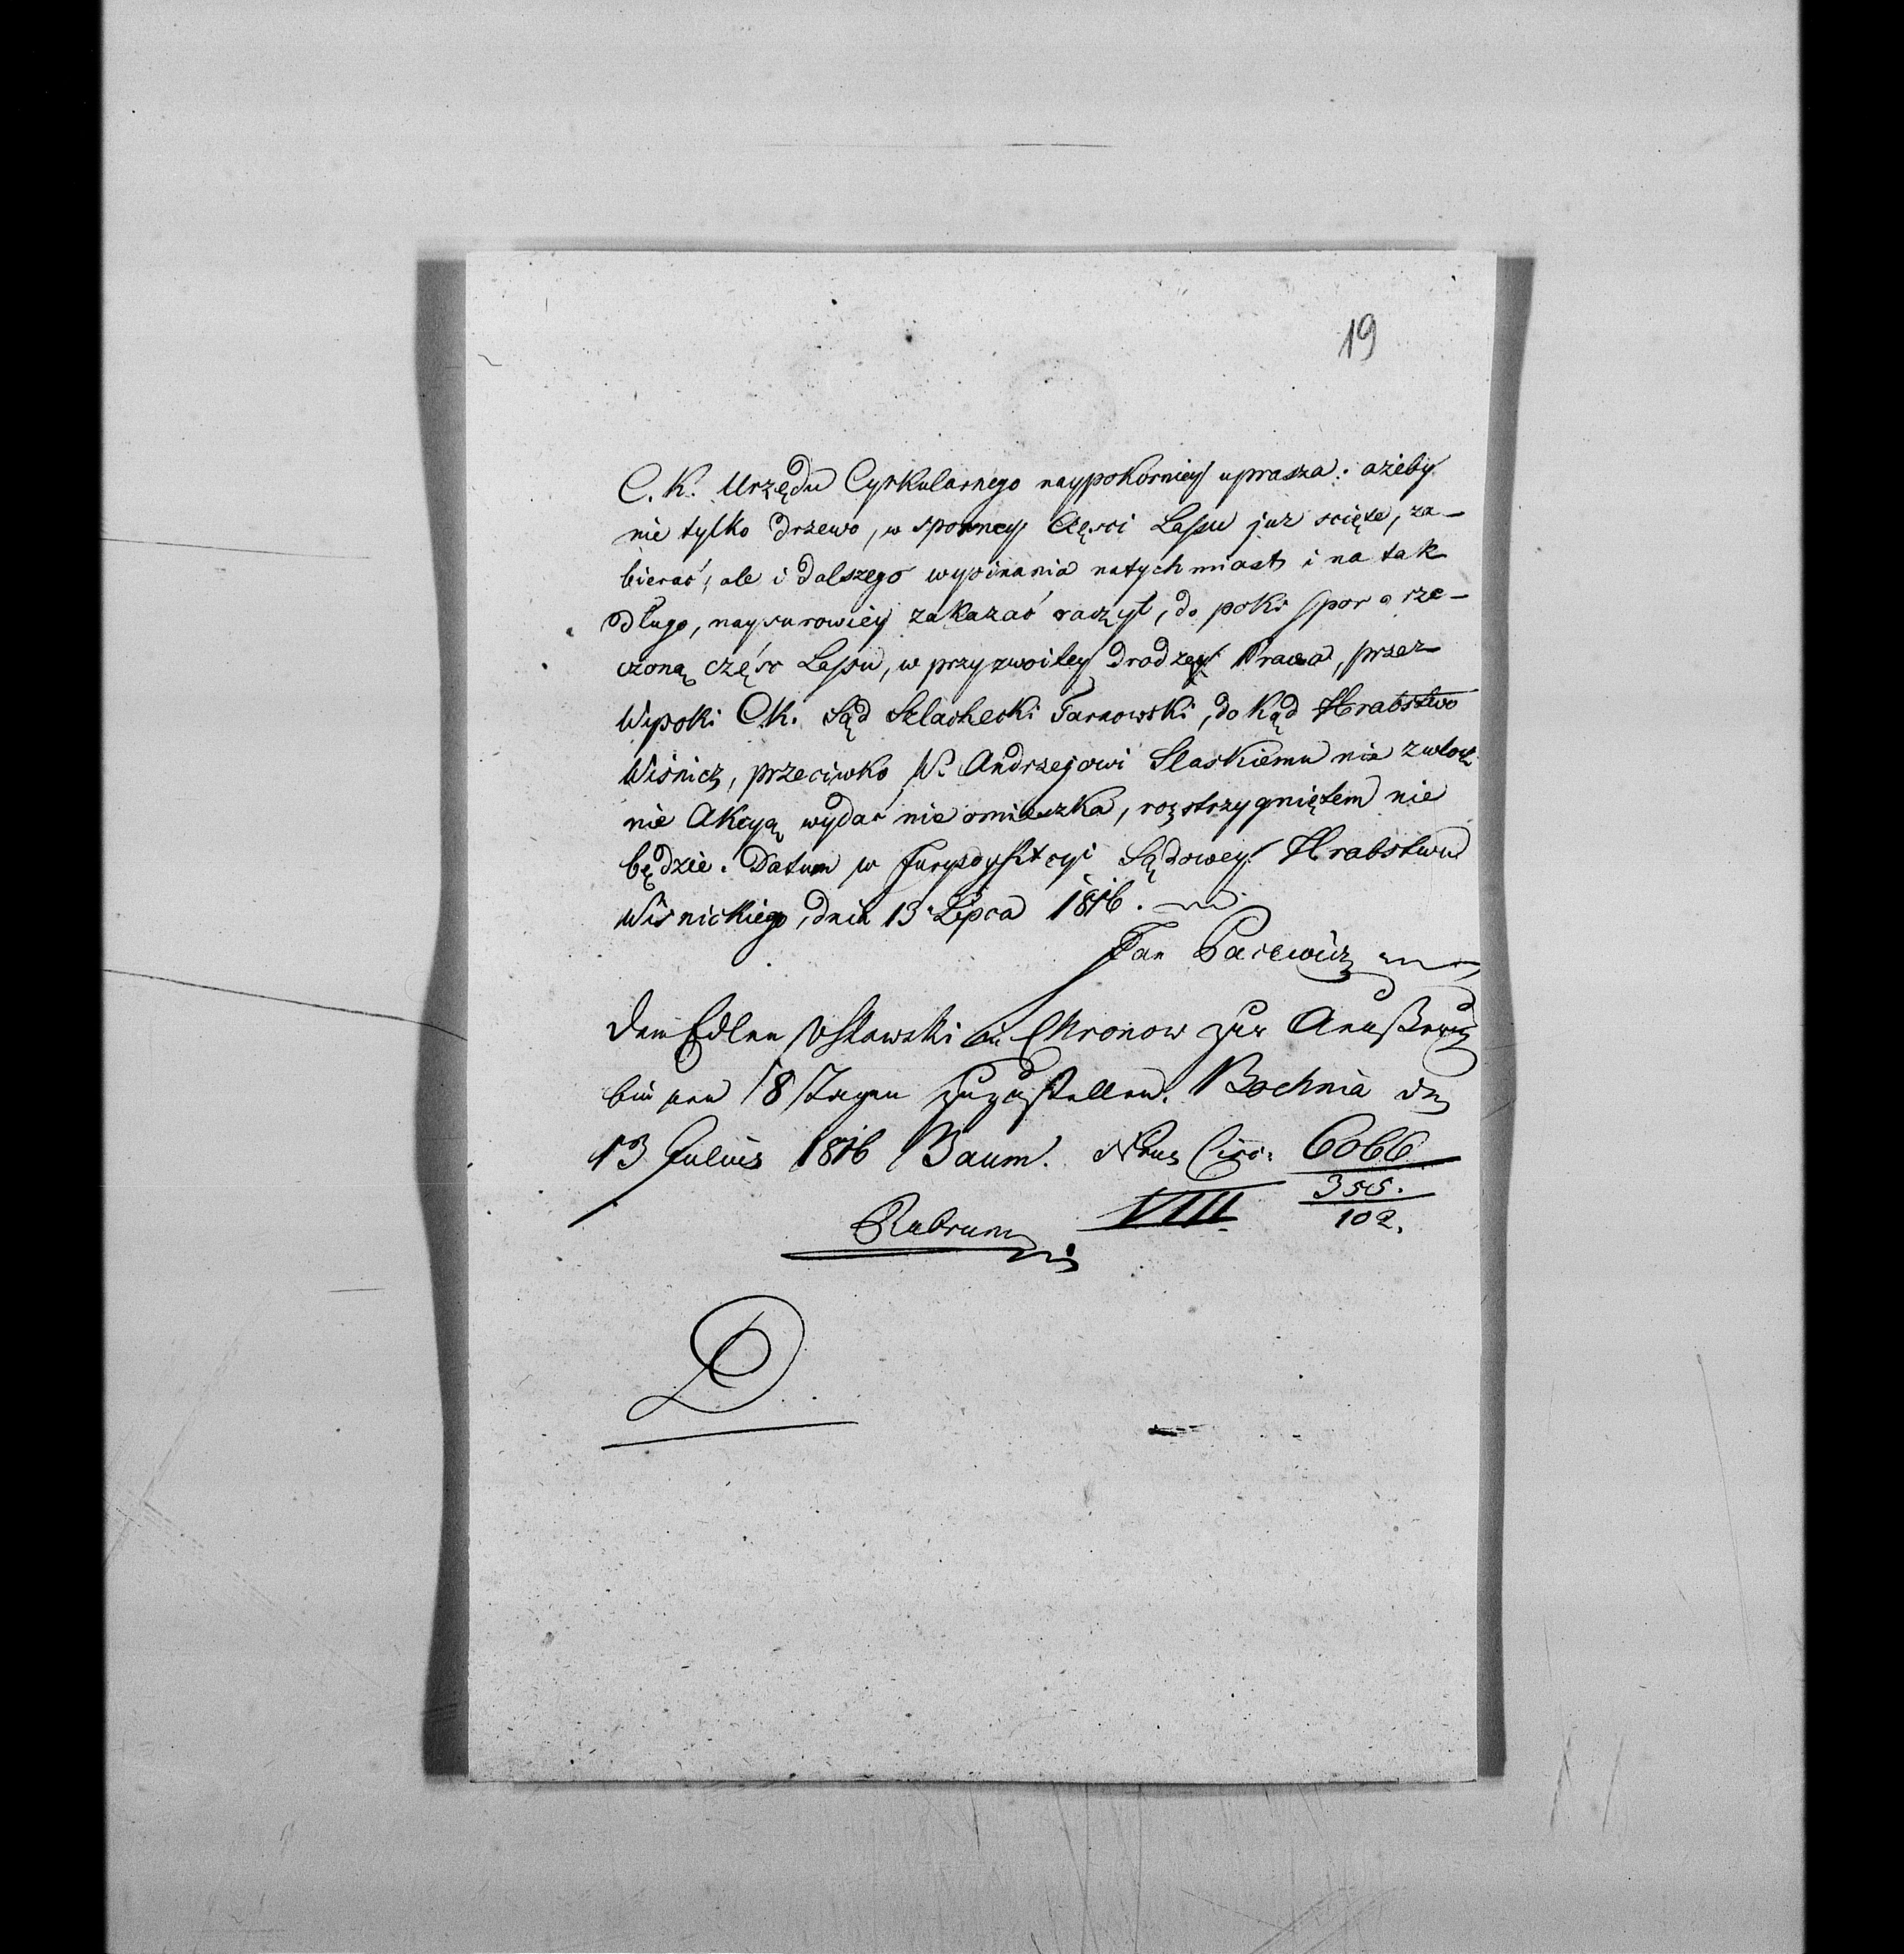 19
C. K. Urzędu Cyrkularnego naypokorniey uprasza: ażeby
nie tylko drzewo, w sporney Części Lassu już ścięte, za-
bierać, ale i dalszego wycinania natychmiast i na tak
długo, naysurowiey zakazać raczył, do poki spor o rze-
czoną część Lassu, w przyzwoitey drodze Prawa, przez
Wysoki C.K. Sąd Szlachecki Tarnowski, do kąd Hrabstwo
Wiśnicz, przeciwko W. Andrzejowi Slaskiemu nie zwłocz
nie Akcyą wydać nie omieszka, rozstrzygniętem nie
będzie. Datum w Juryzdykcyi Sądowey Hrabstwa
Wiśnickiego, dnia 13 Lipca 1816.
Jan Pacewicz
Dem Edlen in Chronow zur
binnen 8 Tagen zuzustellen. Bochnia den
13 Julius 1816 Baum. Nrus Circ: 6066
VIII 355.
102.
Rubrum
D.